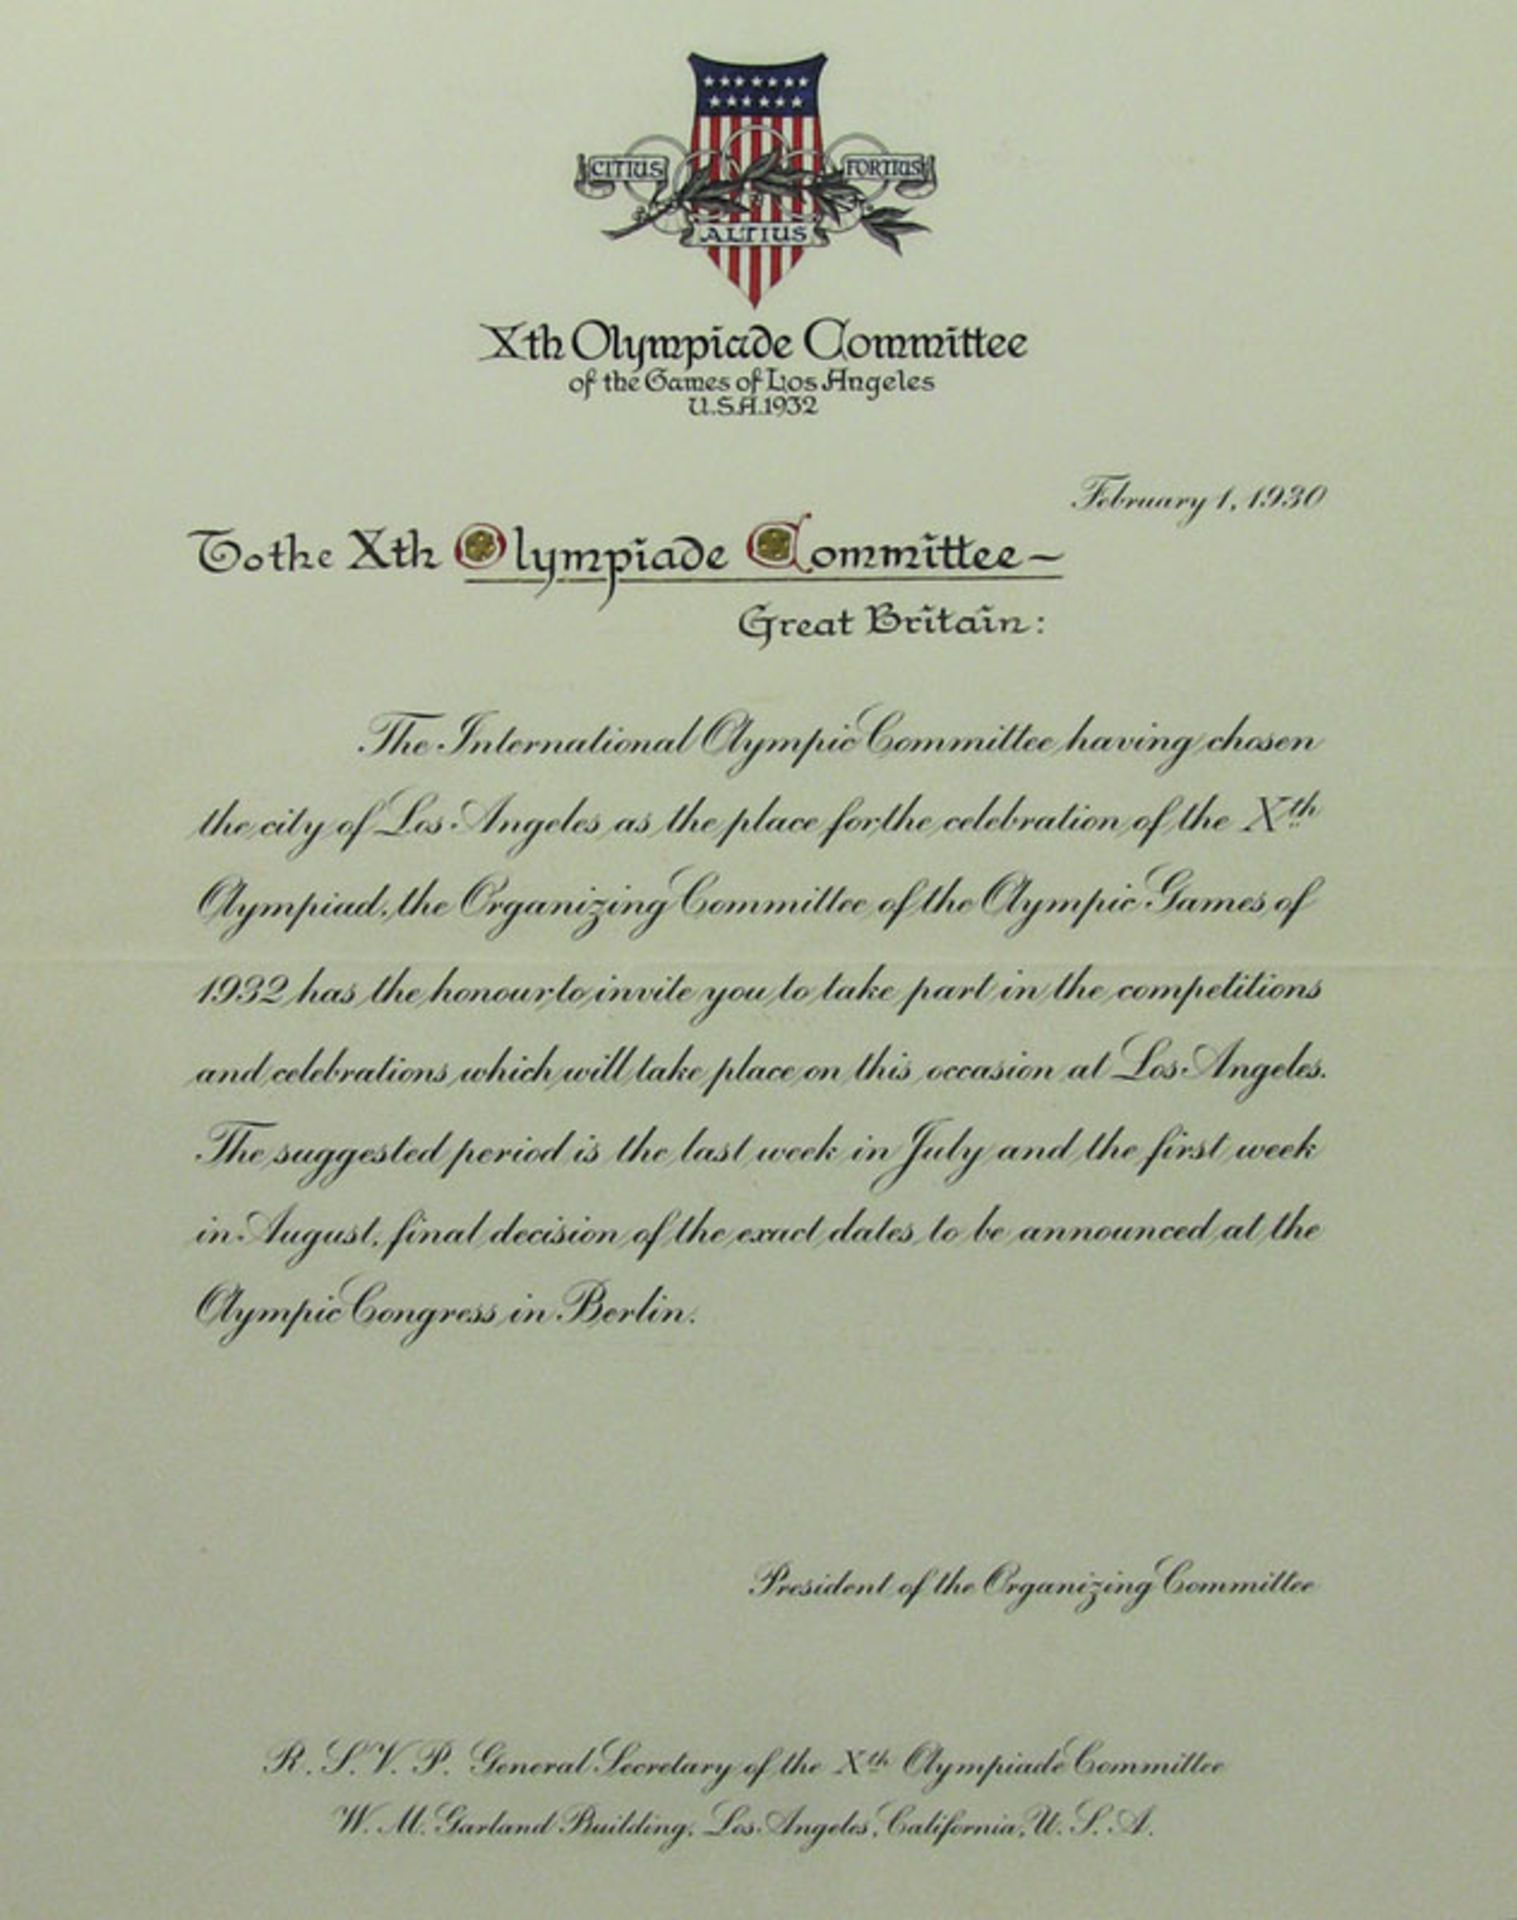 CITIUS
FORTIUS
ALTIUS
Xth Olympiade Committee
of the Games of Los Angeles
U.S.A. 1932
February 1, 1930
To the Xth Olympiade Committee –
Great Britain:
The International Olympic Committee having chosen
the city of Los Angeles as the place for the celebration of the Xth
Olympiad, the Organizing Committee of the Olympic Games of
1932 has the honour to invite you to take part in the competitions
and celebrations which will take place on this occasion at Los Angeles.
The suggested period is the last week in July and the first week
in August, final decision of the exact dates to be announced at the
Olympic Congress in Berlin.
President of the Organizing Committee
R. S. V. P. General Secretary of the Xth Olympiade Committee
W. M. Garland Building, Los Angeles, California, U. S. A.